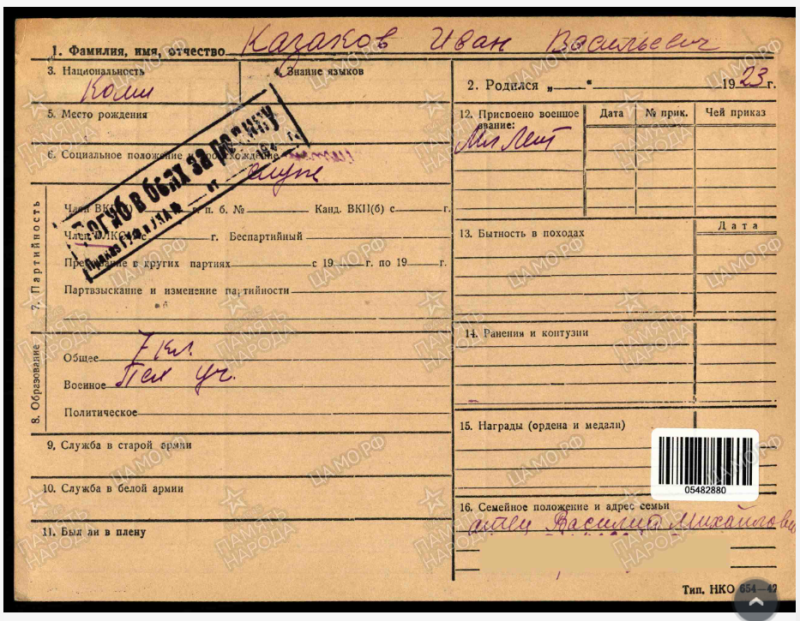 1. Фамилия, имя, отчество Казаков Иван Васильевич
3. Национальность Коми
4. Знание языков
2. Родился „ “ 1923 г.
5. Место рождения
6. Социальное положение служ
Погиб в боях за родину
Приказ ГУФ
7. Партийность
Член ВКП п. б. № Канд. ВКП(б) с г.
Член ВЛКСМ г. Беспартийный
Пребывание в других партиях с 19 г. по 19 г.
Партвзыскание и изменение партийности
8. Образование
Общее 7 кл.
Военное Пех уч.
Политическое
9. Служба в старой армии
10. Служба в белой армии
11. Был ли в плену
12. Присвоено военное звание: Дата № прик. Чей приказ
Мл Лейт
13. Бытность в походах Дата
14. Ранения и контузии
15. Награды (ордена и медали)
05482880
16. Семейное положение и адрес семьи
отец Василий Михайлович
Тип. НКО 654—42
ПАМЯТЬ НАРОДА
ЦАМО.РФ